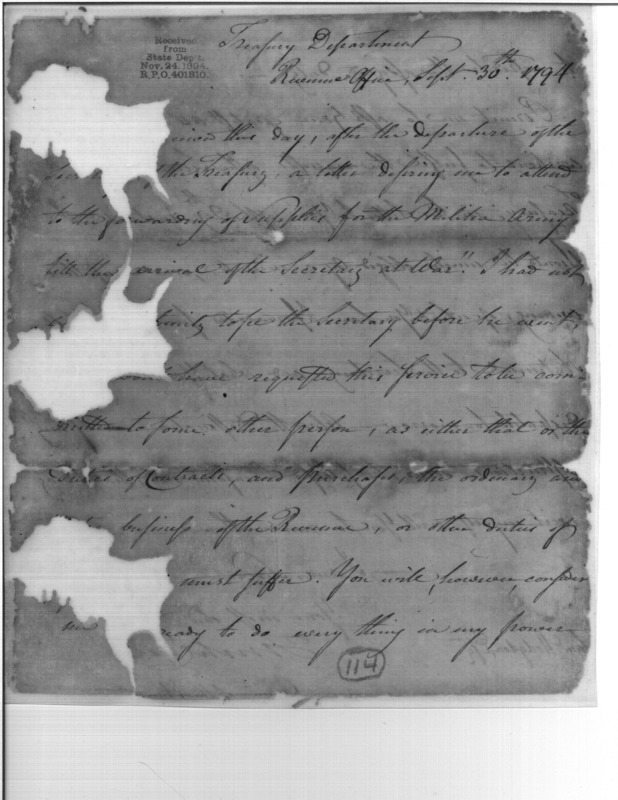 Received
from
State Dep't.
Nov. 24. 1894.
R.P.O. 401810.
Treasury Department
Revenue Office, Sept. 30th. 1794.
this day, after the departure of the
the Treasury, a letter desiring me to attend
to the forwarding of supplies for the Militia Army
till the arrival of the Secretary at War". I had not
to see the Secretary before he went,
have requested this service to be com-
mitted to some other person, as either that or the
of Contracts, and Purchases, the ordinary and
business of the Revenue, or other duties of
must suffer. You will, however, consider
me ready to do every thing in my power
114